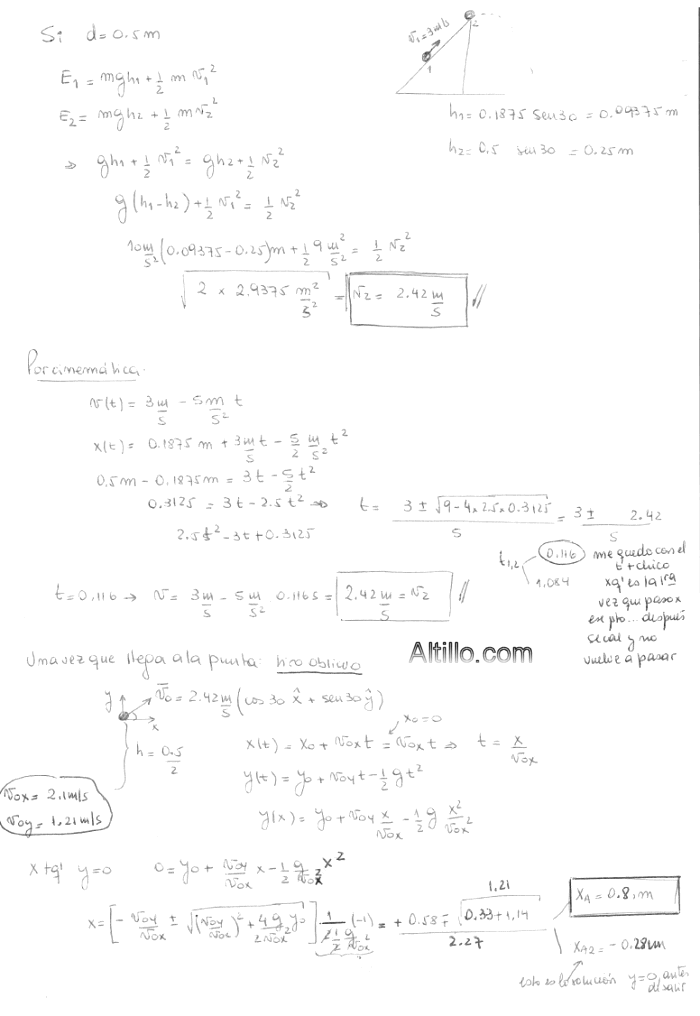 Si d=0.5m
E₁ = mgh₁ + 1/2 m v₁²
E₂ = mgh₂ + 1/2 m v₂²
v₁=3m/s
1
2
h₁ = 0.1875 sen30 = 0.09375m
h₂ = 0,5 sen30 = 0.25m
⇒ gh₁ + 1/2 v₁² = gh₂ + 1/2 v₂²
g(h₁-h₂) + 1/2 v₁² = 1/2 v₂²
10 m/s² (0.09375-0.25)m + 1/2 9 m²/s² = 1/2 v₂²
√(2 x 2.9375 m²/s²) = v₂ = 2.42 m/s //
Por cinemática.
v(t) = 3 m/s - 5 m/s² t
x(t) = 0.1875 m + 3 m/s t - 5/2 m/s² t²
0.5m - 0.1875m = 3t - 5/2 t²
0.3125 = 3t - 2.5t² ⇒ t = (3 ± √(9-4x2.5x0.3125))/5 = (3 ± 2.42)/5
2.5t² - 3t + 0.3125
t₁,₂ 0.116
1.084
me quedo con el
t + chico
xq' es la 1ra
vez que pasa x
ese pto... después
se cae y no
vuelve a pasar
t = 0,116 → v = 3 m/s - 5 m/s² 0.1165 = 2.42 m/s = v₂ //
Una vez que llega a la punta: tiro oblicuo
Altillo.com
y
x
v̄₀ = 2.42 m/s (cos30 x̂ + sen30 ŷ)
h = 0.5/2
v₀x = 2,1m/s
v₀y = 1,21m/s
x₀=0
x(t) = x₀ + v₀x t = v₀x t ⇒ t = x/v₀x
y(t) = y₀ + v₀y t - 1/2 g t²
y(x) = y₀ + v₀y x/v₀x - 1/2 g x²/v₀x²
x tq' y=0 0 = y₀ + v₀y/v₀x x - 1/2 g/v₀x² x²
x = [- v₀y/v₀x ± √((v₀y/v₀x)² + 4g/2v₀x² y₀)] . 1/(2 1/2 g/v₀x²) (-1) = (+ 0.58 ∓ √(0.33+1,14))/2.27
1,21
x_A = 0.8, m
x_A2 = - 0.28m
esta es la solución y=0, antes
de salir